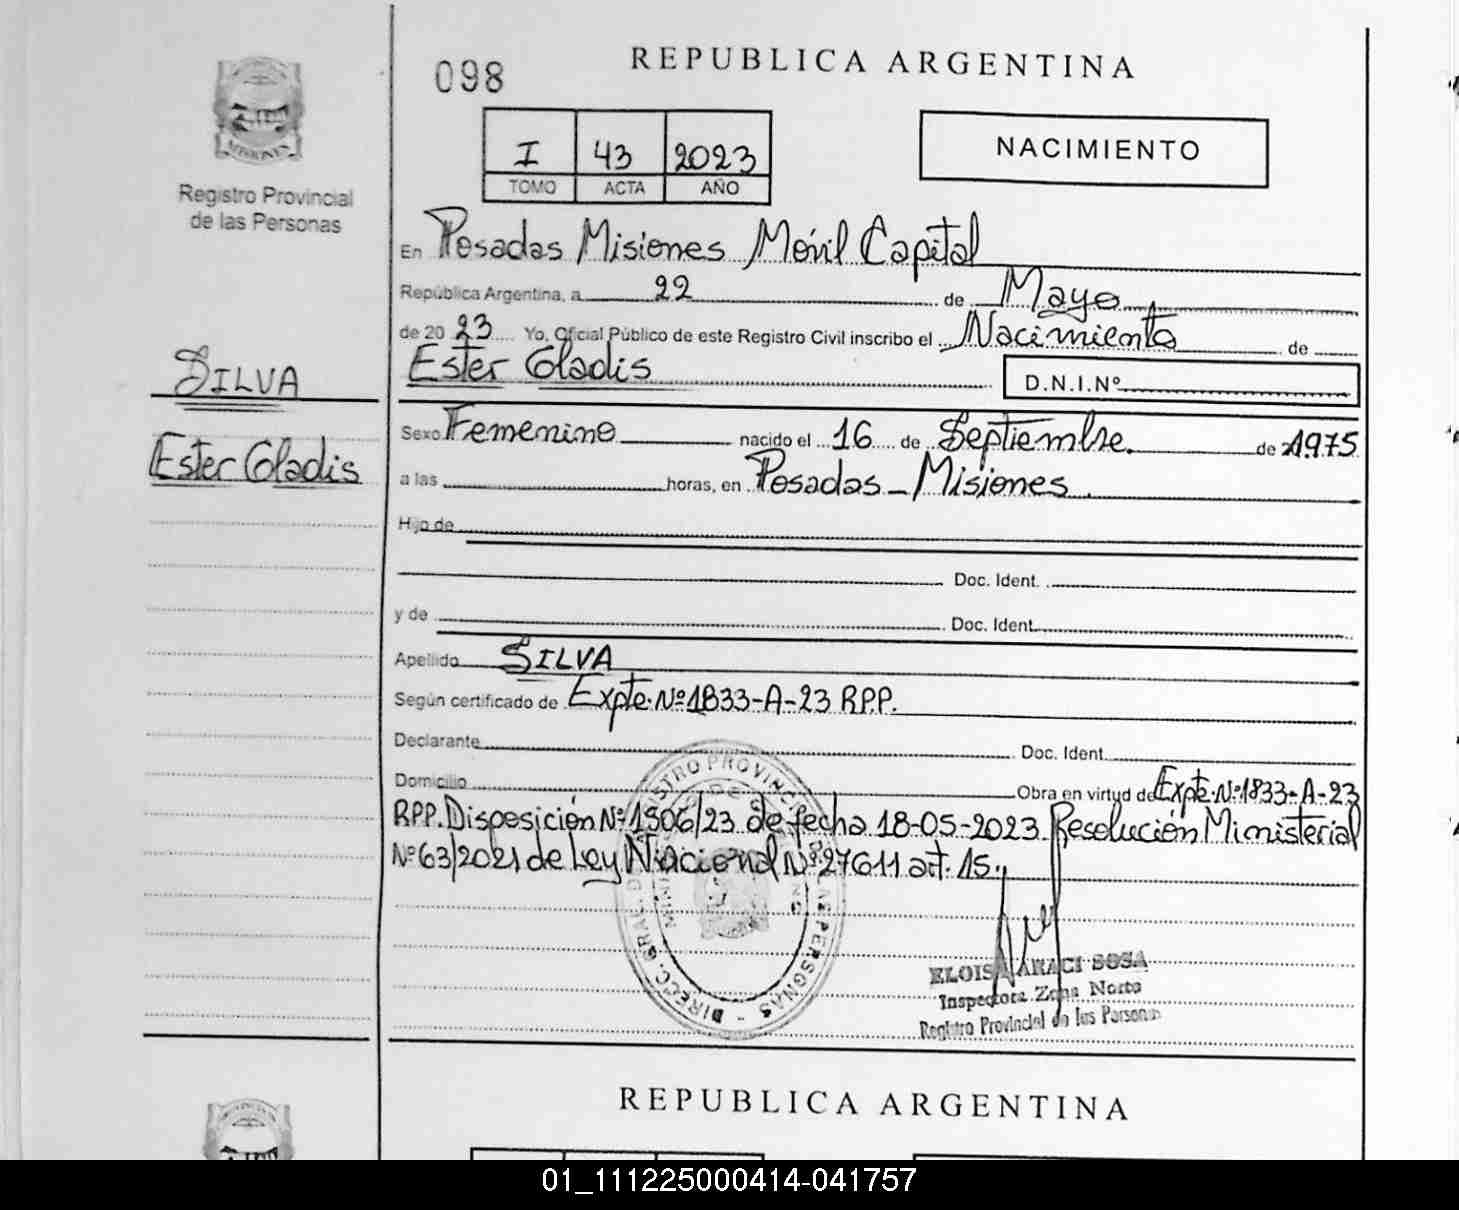 098
REPUBLICA ARGENTINA
I 43 2023
TOMO ACTA AÑO
NACIMIENTO
MISIONES
Registro Provincial
de las Personas
SILVA
Ester Gladis
En Posadas Misiones Móvil Capital
República Argentina, a 22 de Mayo
de 20 23 Yo, Oficial Público de este Registro Civil inscribo el Nacimiento de
Ester Gladis D.N.I.Nº
Sexo Femenino nacido el 16 de Septiembre de 1975
a las horas, en Posadas - Misiones.
Hijo de
Doc. Ident.
y de Doc. Ident.
Apellido SILVA
Según certificado de Expte. Nº 1833-A-23 R.P.P.
Declarante Doc. Ident.
Domicilio Obra en virtud de Expte. Nº 1833-A-23
RPP. Disposición Nº 1506/23 de fecha 18-05-2023 Resolución Ministerial
Nº 63/2021 de Ley Nacional Nº 27611 art. 15.
ELOISA ARACI SOSA
Inspectora Zona Norte
Registro Provincial de las Personas
REPUBLICA ARGENTINA
01_111225000414-041757